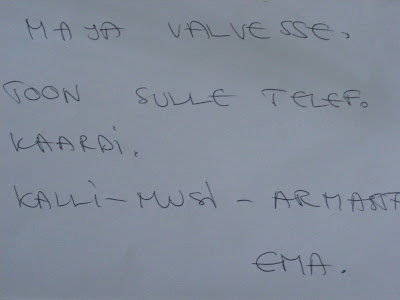 MAJA VALVESSE.
TOON SULLE TELEF.
KAARDI.
KALLI-MUSI-ARMAST
EMA.